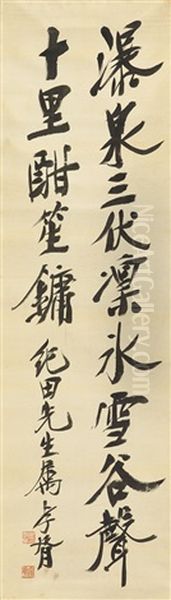 瀑泉三伏凜冰雪谷聲
十里酣笙鏞
紀田先生屬 孝胥